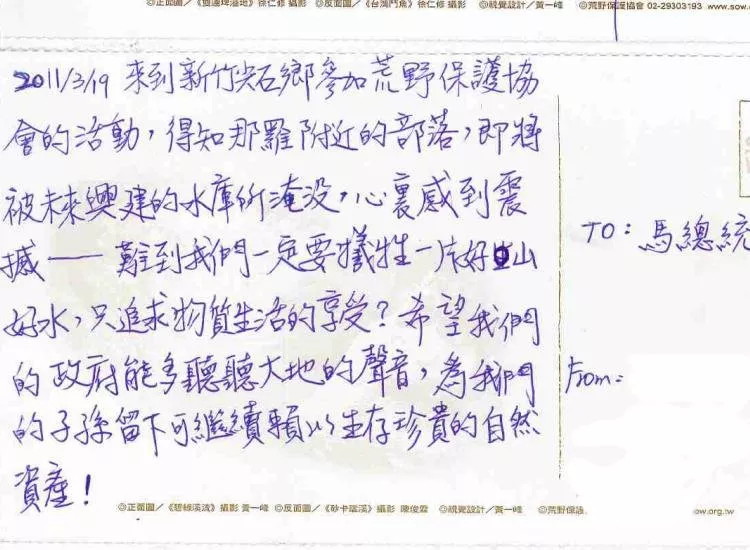 ◎正面圖／《雙連埤湿地》徐仁修 攝影 ◎反面圖／《台灣鬥魚》徐仁修 攝影 ◎視覺設計／黃一峰 ◎荒野保護協會 02-29303193 www.sow.
2011/3/19 來到新竹尖石鄉參加荒野保護協
會的活動，得知那羅附近的部落，即將
被未來興建的水庫所淹没，心裏感到震
撼——難到我們一定要犠牲一片好山
好水，只追求物質生活的享受？希望我們
的政府能多聽聽大地的聲音，為我們
的子孫留下可繼續賴以生存珍貴的自然
資產！
TO：馬總統
From：
◎正面圖／《碧綠溪流》攝影 黃一峰 ◎反面圖／《砂卡礑溪》攝影 陳俊霖 ◎視覺設計／黃一峰 ◎荒野保護
ow.org.tw